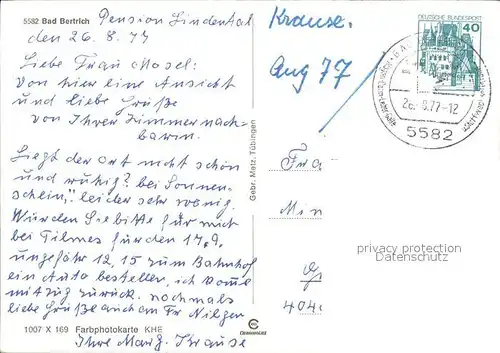 5582 Bad Bertrich Pension Lindental
den 26.8.77
Liebe Frau Mosel:
Von hier eine Ansicht
und liebe Grüße
von Ihrer Zimmernach-
barin.
Liegt der Ort nicht schön
und ruhig? bei Sonnen-
schein, leider sehr wenig.
Würden Sie bitte für mich
bei Tilmes für den 17.9.
ungefähr 12,15 zum Bahnhof
ein Auto bestellen, ich komme
mit zug zurück. nochmals
liebe Grüße auch an Fr Nilges
Ihre Marg. Krause
1007 X 169 Farbphotokarte KHE
Gebr. Metz, Tübingen
Krause.
Aug 77
DEUTSCHE BUNDESPOST
40
26.8.77-12
5582
Fra
Min
404
privacy protection
Datenschutz